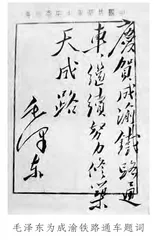 庆贺成渝铁路通
车，继续努力修筑
天成路
毛泽东
毛泽东为成渝铁路通车题词